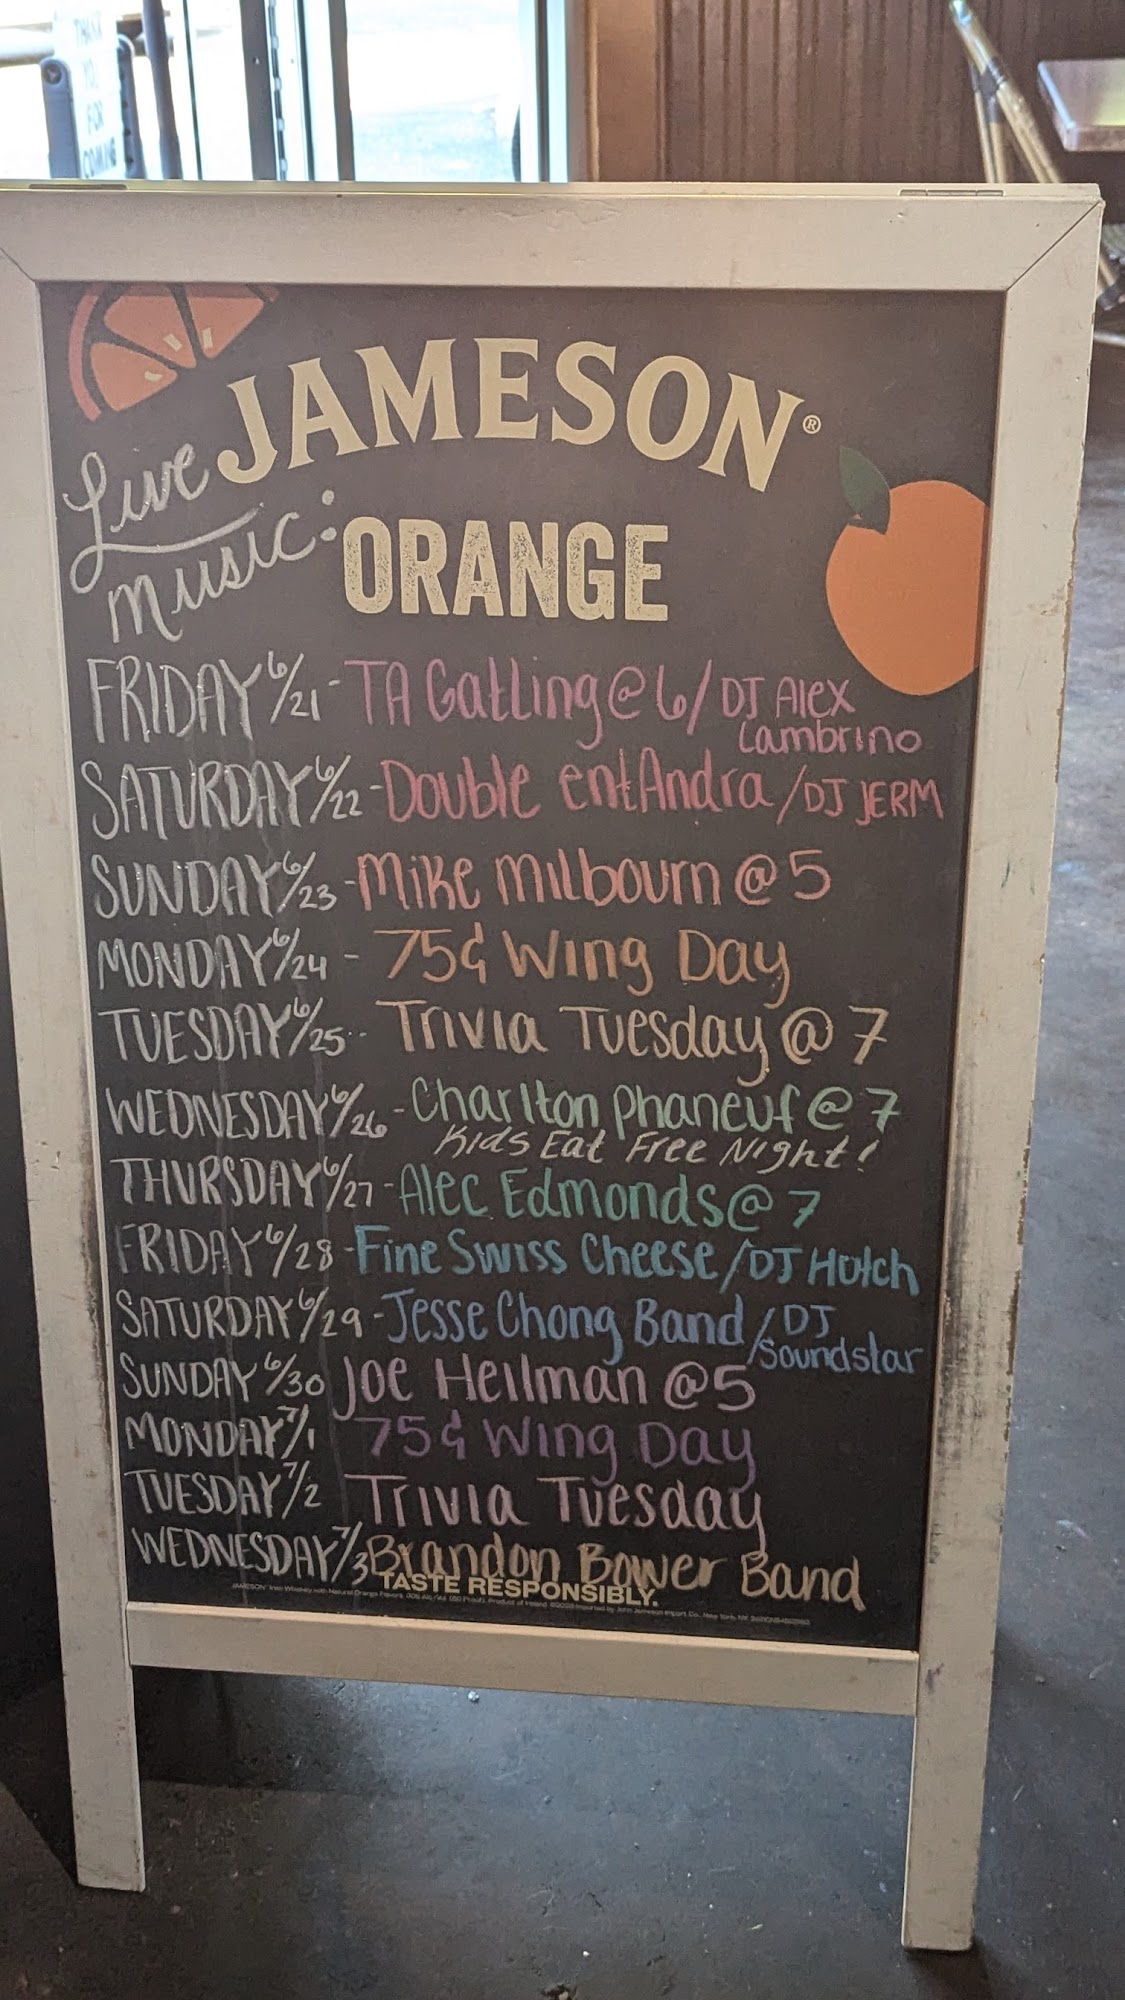 THANK
YOU
FOR
COMING
JAMESON®
Live
music:
ORANGE
FRIDAY 6/21 - TA Gatling @ 6 / DJ Alex
Lambrino
SATURDAY 6/22 - Double entAndra / DJ JERM
SUNDAY 6/23 - Mike Milbourn @ 5
MONDAY 6/24 - 75¢ Wing Day
TUESDAY 6/25 - Trivia Tuesday @ 7
WEDNESDAY 6/26 - Charlton Phaneuf @ 7
Kids Eat Free Night!
THURSDAY 6/27 - Alec Edmonds @ 7
FRIDAY 6/28 - Fine Swiss Cheese / DJ Hutch
SATURDAY 6/29 - Jesse Chong Band / DJ
Soundstar
SUNDAY 6/30 Joe Heilman @ 5
MONDAY 7/1 75¢ Wing Day
TUESDAY 7/2 Trivia Tuesday
WEDNESDAY 7/3 Brandon Bower Band
TASTE RESPONSIBLY.